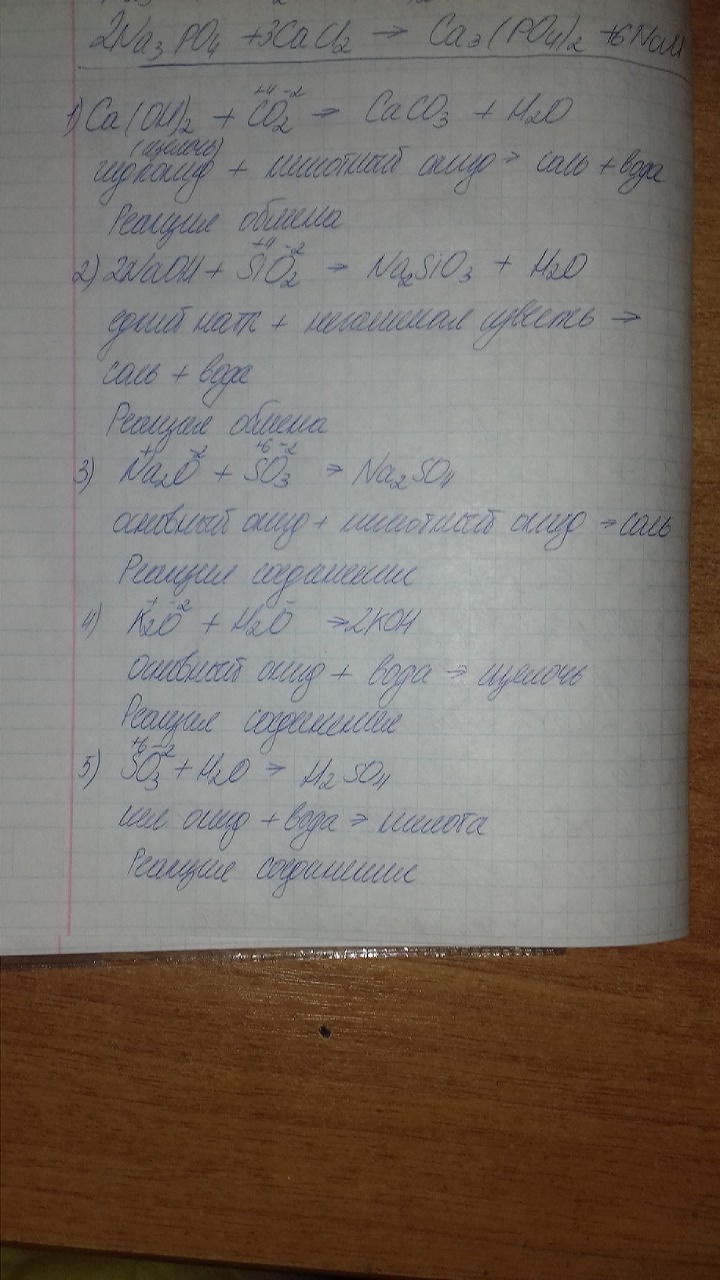 2Na₃PO₄ + 3CaCl₂ → Ca₃(PO₄)₂ + 6NaCl
1) Ca(OH)₂ + CO₂ → CaCO₃ + H₂O
+4 -2
(щелочь)
гидроксид + кислотный оксид → соль + вода
Реакция обмена
+4 -2
2) 2NaOH + SiO₂ → Na₂SiO₃ + H₂O
едкий натр + негашеная известь →
соль + вода
Реакция обмена
+ -2 +6 -2
3) Na₂O + SO₃ → Na₂SO₄
основный оксид + кислотный оксид → соль
Реакция соединение
+ -2
4) K₂O + H₂O → 2KOH
основный оксид + вода → щелочь
Реакция соединения
+6 -2
5) SO₃ + H₂O → H₂SO₄
кисл оксид + вода → кислота
Реакция соединение